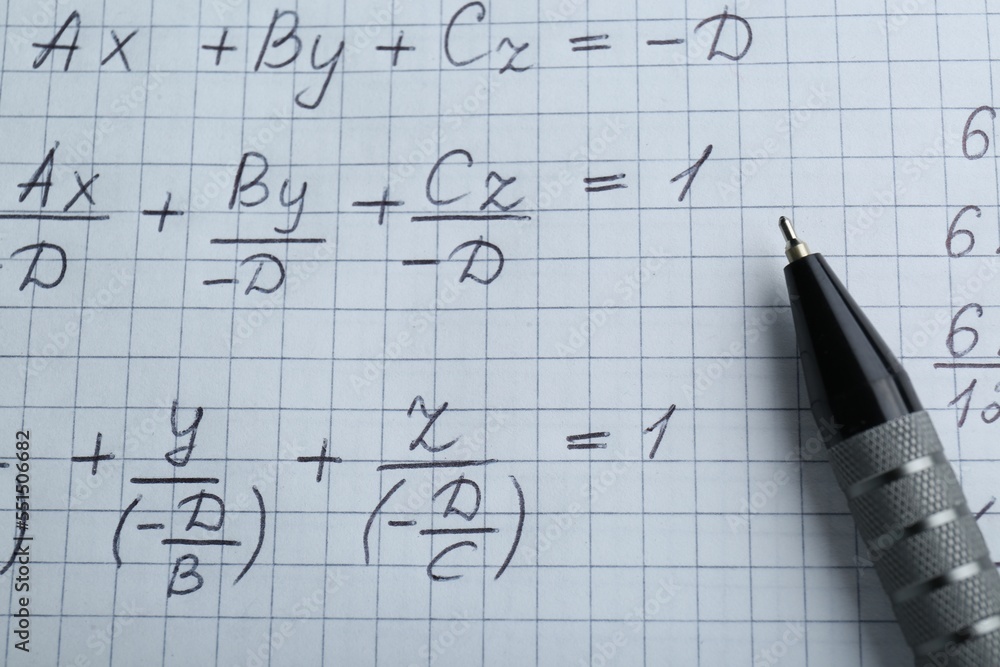 Ax + By + Cz = -D
Ax/-D + By/-D + Cz/-D = 1
) + y/(-D/B) + z/(-D/C) = 1
6
6
6
12
Adobe Stock | #551506682